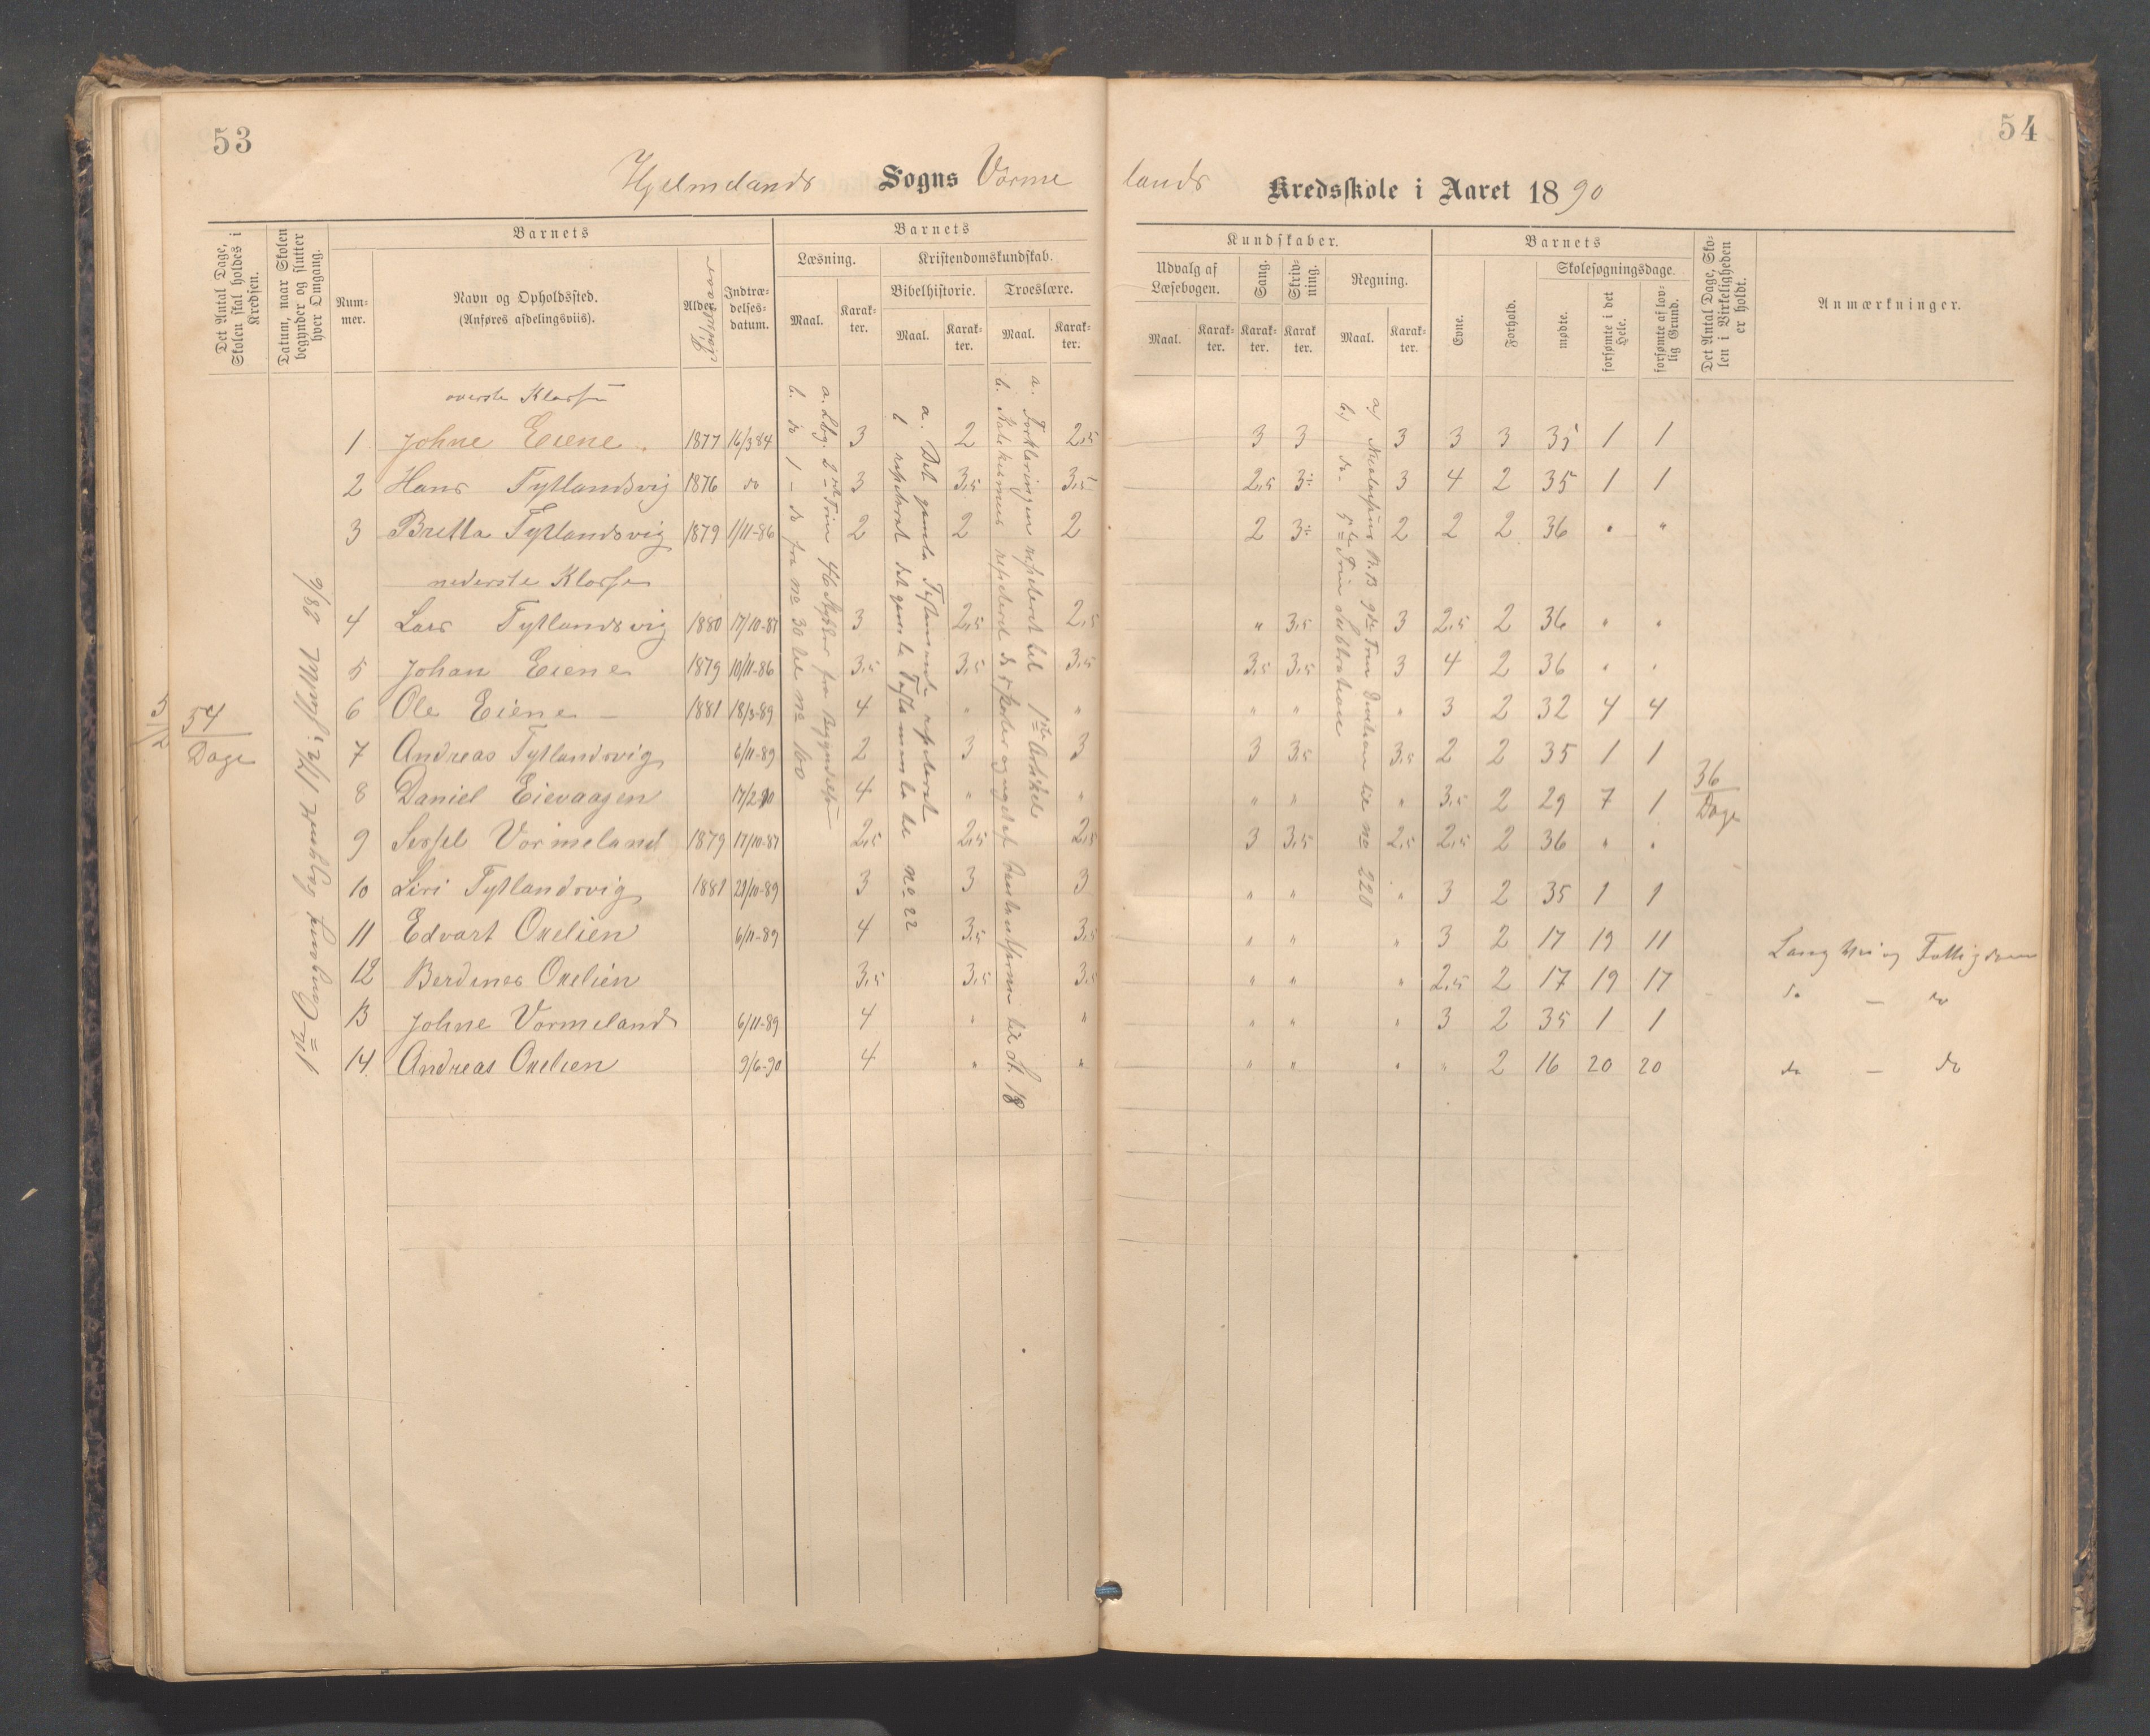 53
Hjelmelands Sogns Vorme
Det Antal Dage, Skolen skal holdes i Kredsen.
Datum, naar Skolen begynder og slutter hver Omgang.
Barnets
Num-
mer.
Navn og Opholdssted.
(Anføres afdelingsviis).
Alder
Fødselsaar
Indtræ-
delses-
datum.
Barnets
Læsning.
Kristendomskundskab.
Bibelhistorie.
Troeslære.
Maal.
Karak-
ter.
Maal.
Karak-
ter.
Maal.
Karak-
ter.
54
Dage
1ste Omgang
28/6
øverste Klasse
1 Johne Eiene 1877 16/3 84 3 2 2,5
2 Hans Tytlandsvig 1876 do 3 3,5 3,5
3 Britta Tytlandsvig 1879 1/11-86 2 2 2
nederste Klasse
4 Lars Tytlandsvig 1880 17/10-87 3 2,5 2,5
5 Johan Eiene 1879 10/11-86 3,5 3,5 3,5
6 Ole Eiene 1881 18/3-89 4 " "
7 Andreas Tytlandsvig 6/11-89 2 3 3
8 Daniel Eievaagen 17/2 90 4 " "
9 Sissel Vormeland 1879 17/10-87 2,5 2,5 2,5
10 Siri Tytlandsvig 1881 21/10-89 3 3 3
11 Edvart Oxelien 6/11-89 4 3,5 3,5
12 Berdines Oxelien 3,5 3,5 3,5
13 Johne Vormeland 6/11-89 4 " "
14 Andreas Oxelien 9/6-90 4 " "
a. Lbg. 2det Trin 46 Stykker fra Begyndelsen
b. do 1 - do fra no 30 til no 100
a. Det gamle Testamente repeteret
b repeteret det gamle Testamente til no 22
a. Forklaringen repeteret til 1ste Artikel
54
lands Kredsskole i Aaret 1890
Kundskaber.
Udvalg af
Læsebogen.
Maal.
Karak-
ter.
Sang.
Karak-
ter.
Skriv-
ning.
Karak
ter.
Regning.
Maal.
Karak-
ter.
Barnets
Evne.
Forhold.
Skolesøgningsdage.
mødte.
forsømte i det Hele.
forsømte af lov-
lig Grund.
Det Antal Dage, Sko-
len i Virkeligheden
er holdt.
Anmærkninger.
3 3 3 3 3 35 1 1
2,5 3÷ 3 4 2 35 1 1
2 3÷ 2 2 2 36 " "
" 3,5 3 2,5 2 36 " "
3,5 3,5 3 4 2 36 " "
" " " 3 2 32 4 4
3 3,5 3,5 2 2 35 1 1
" " " 3,5 2 29 7 1
3 3,5 2,5 2,5 2 36 " "
" " " 3 2 35 1 1
" " " 3 2 17 19 11 Lang Vei og Fattigdom
" " " 2,5 2 17 19 17 do — do
" " " 3 2 35 1 1
" " " " 2 16 20 20 do — do
b) do 5te Trin Subtraktion
36
Dage